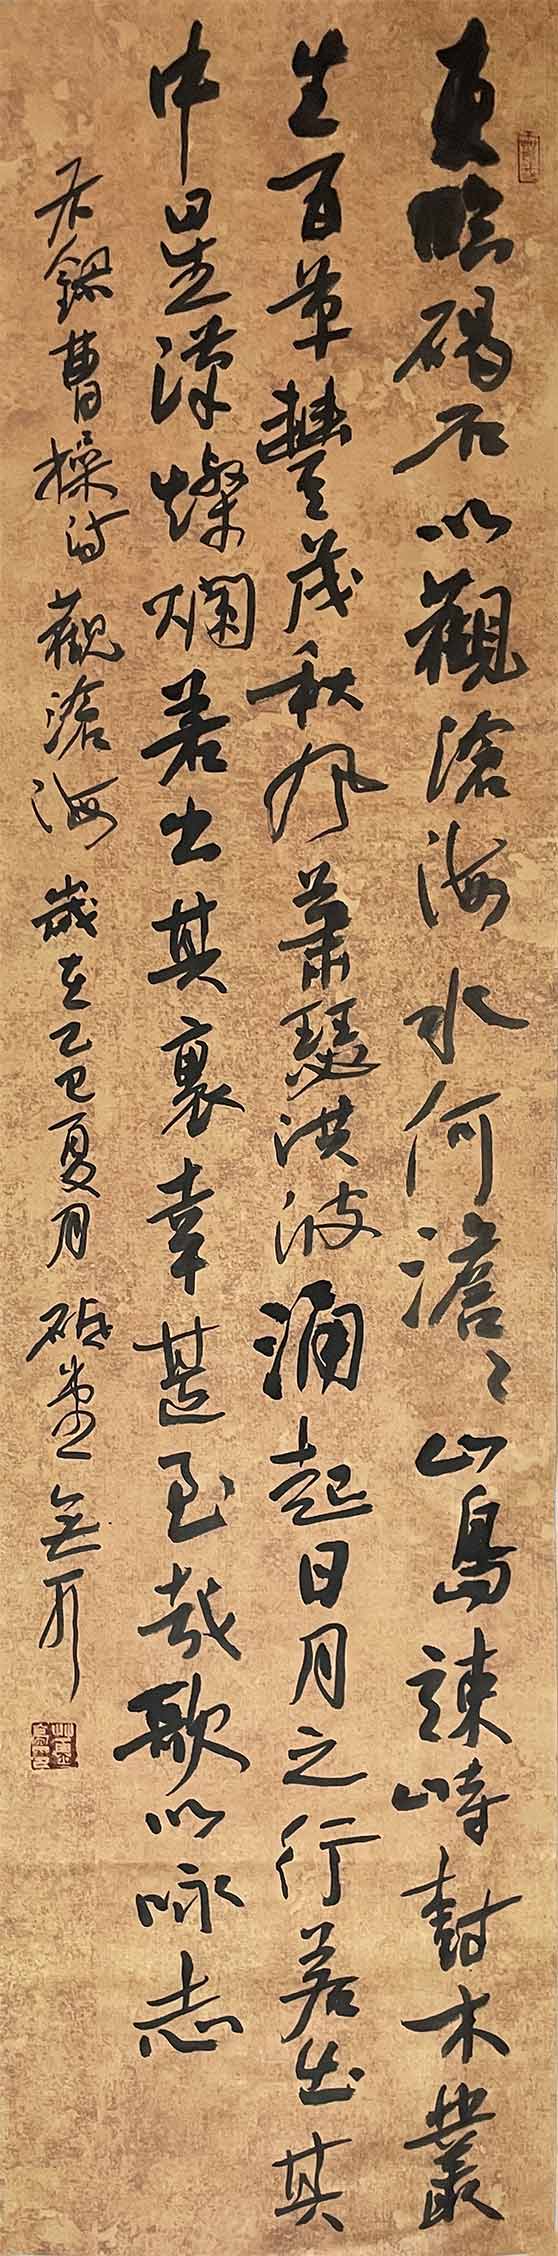 東臨碣石以觀滄海水何澹〻山島竦峙樹木叢
生百草豐茂秋風蕭瑟洪波涌起日月之行若出其
中星漢燦爛若出其裏幸甚至哉歌以咏志
右錄曹操詩觀滄海 歲在乙巳夏月